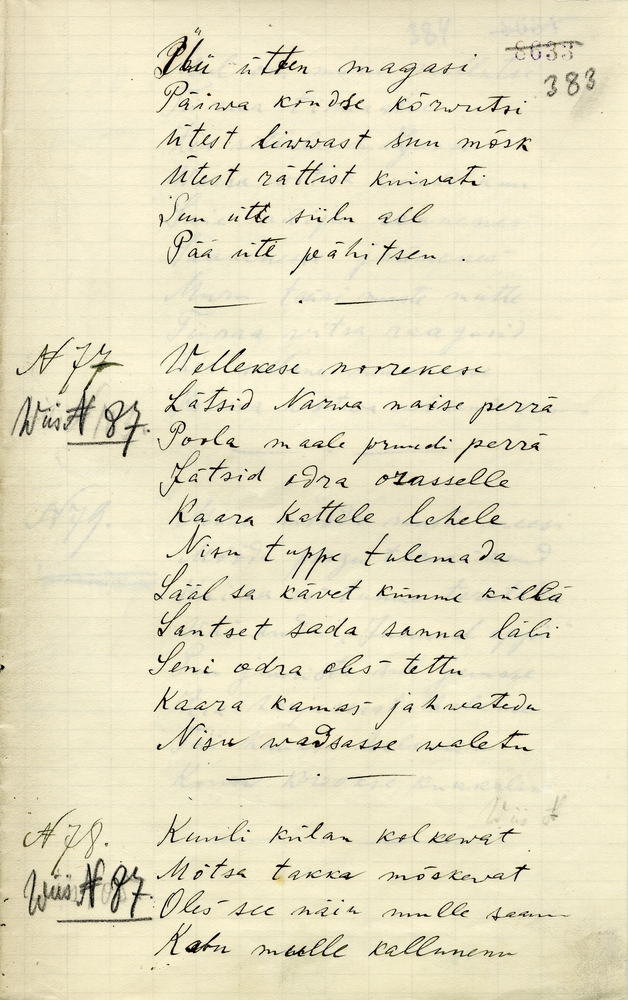 8633
383
Püü ütten magasi
Päiwa kõndse kõrwutsi
Ütest liwwast suu mõsk
Ütest rättist kuiwati
Suu ütte siilu all
Pää üte pähitsen.
N 77
Wiis N 87.
Wellekese norrekese
Lätsid Narwa naise perrä
Poola maale pruudi perrä
Jätsid odra orasselle
Kaara kattele lehele
Nisu tuppe tulemada
Sääl sa kävet kümme küllä
Santset sada sanna läbi
Seni odra oles tettu
Kaara kamas jahwatedu
Nisu wadsasse waletu
N 78.
Wiis N 87.
Wiis N
Kuuli külan kolkewat
Mõtsa takka mõskewat
Oles see näiu mulle saanu
Kabu mulle kallunenu